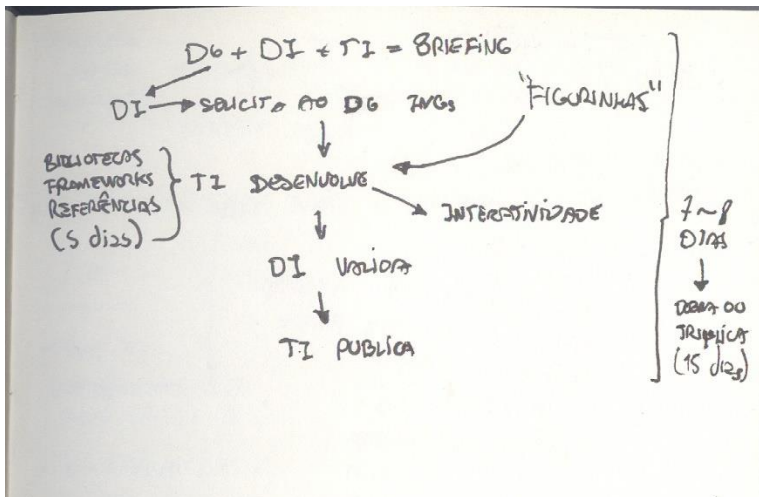 DG + DI + TI = BRIEFING
DI → SOLICITA AO DG IMGs
"FIGURINHAS"
BIBLIOTECAS
FRAMEWORKS
REFERÊNCIAS
(5 dias)
TI DESENVOLVE
INTERATIVIDADE
DI VALIDA
TI PUBLICA
7~8
DIAS
DOBRA OU
TRIPLICA
(15 dias)